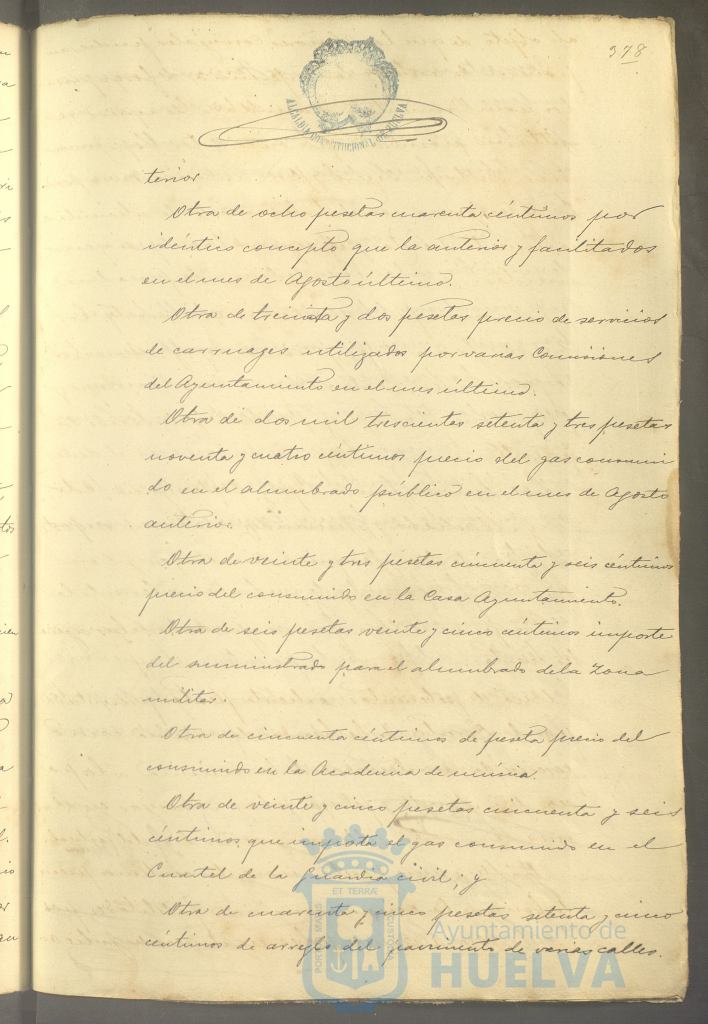 378
ALCALDIA CONSTITUCIONAL DE HUELVA
terior
Otra de ocho pesetas cuarenta céntimos por
idéntico concepto que la anterior y facilitados
en el mes de Agosto último.
Otra de treinta y dos pesetas precio de servicios
de carruages utilizados por varias Comisiones
del Ayuntamiento en el mes último.
Otra de dos mil trescientas setenta y tres pesetas
noventa y cuatro céntimos precio del gas consumi
do en el alumbrado público en el mes de Agosto
anterior.
Otra de veinte y tres pesetas cincuenta y seis céntimos
precio del consumido en la Casa Ayuntamiento.
Otra de seis pesetas veinte y cinco céntimos importe
del suministrado para el alumbrado de la Zona
militar
Otra de cincuenta céntimos de peseta precio del
consumido en la Academia de música.
Otra de veinte y cinco pesetas cincuenta y seis
céntimos que importa el gas consumido en el
Cuartel de la Guardia civil; y
Otra de cuarenta y cinco pesetas setenta y cinco
céntimos de arreglo del pavimento de varias calles.
ET TERRÆ
Ayuntamiento de
HUELVA